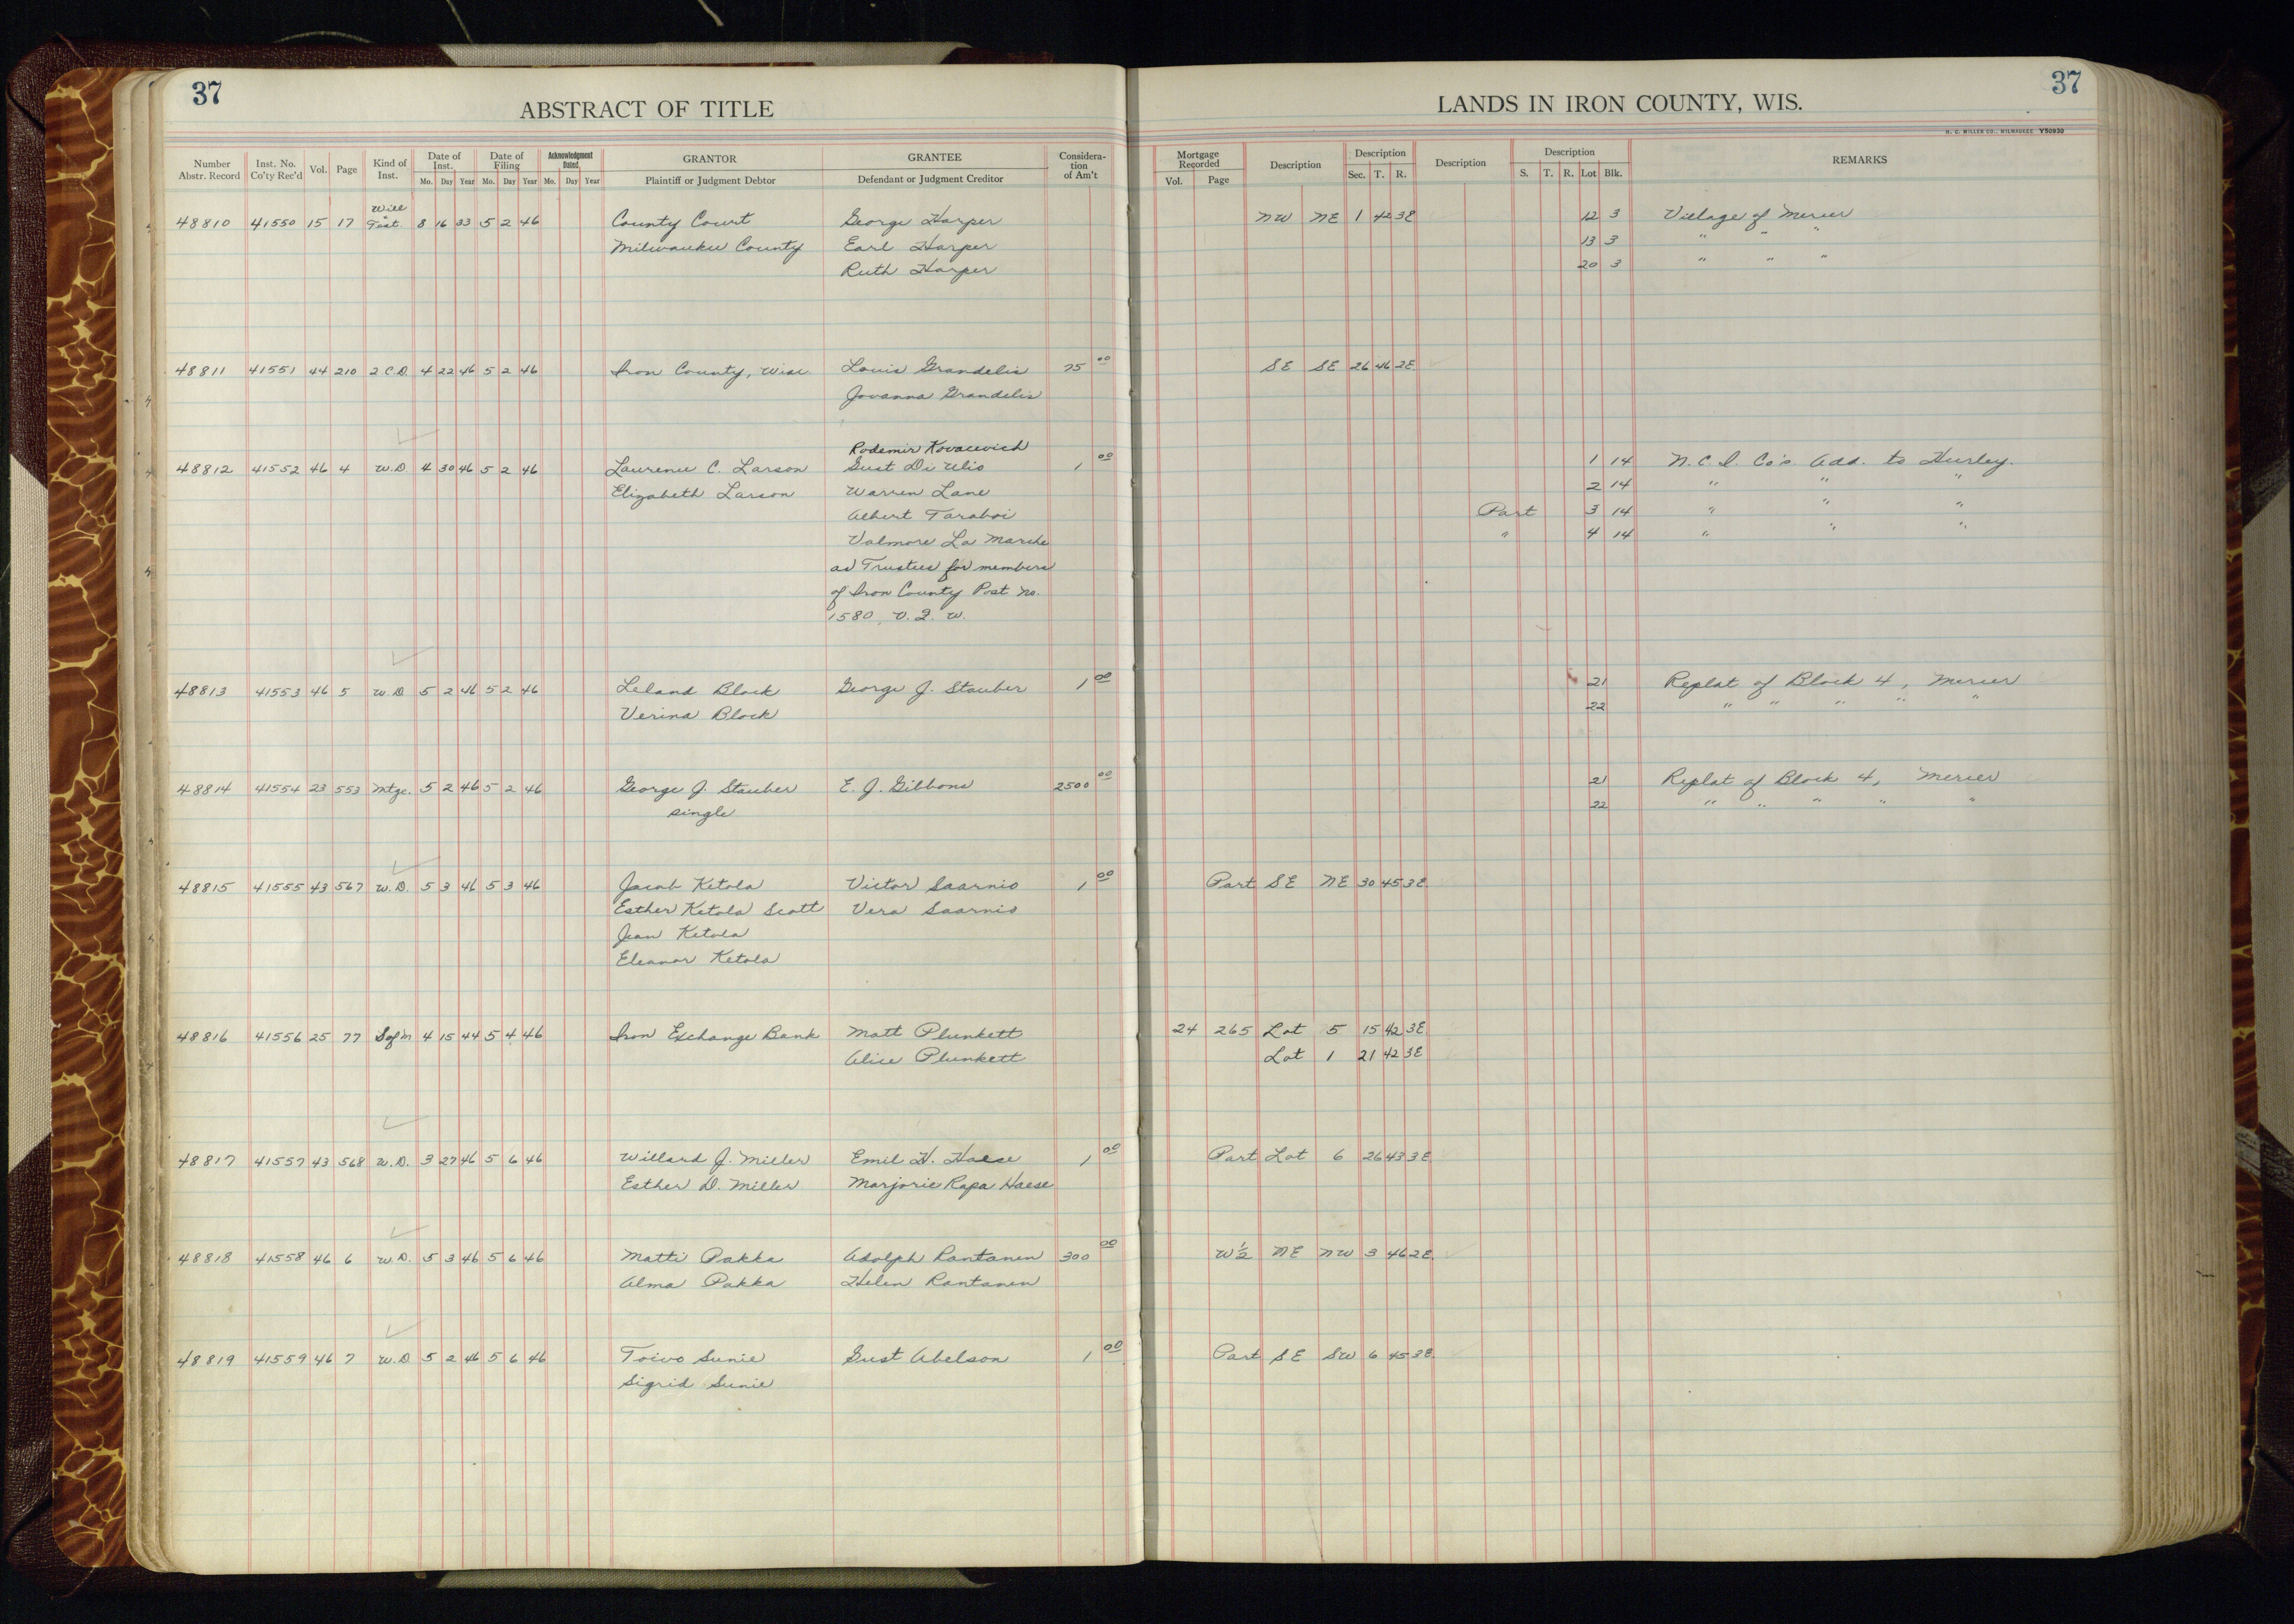 37
ABSTRACT OF TITLE
LANDS IN IRON COUNTY, WIS.
37
H. C. MILLER CO., MILWAUKEE Y50930
Number Abstr. Record Inst. No. Co'ty Rec'd Vol. Page Kind of Inst. Date of Inst. Mo. Day Year Date of Filing Mo. Day Year Acknowledgment Dated Mo. Day Year GRANTOR Plaintiff or Judgment Debtor GRANTEE Defendant or Judgment Creditor Considera-tion of Am't Mortgage Recorded Vol. Page Description Description Sec. T. R. Description Description S. T. R. Lot Blk. REMARKS
Will &
48810 41550 15 17 Test. 8 16 33 5 2 46 County Court George Harper NW NE 1 42 3E 12 3 Village of Mercer
Milwaukee County Earl Harper 13 3 " " "
Ruth Harper 20 3 " " "
48811 41551 44 210 2 C.D. 4 22 46 5 2 46 Iron County, Wisc. Louis Grandelis 75 00 SE SE 26 46 2E
Jovanna Grandelis
Rodemir Kovacevich
48812 41552 46 4 W.D 4 30 46 5 2 46 Laurence C. Larson Gust Di Ulio 1 00 1 14 N.C.I. Co's. Add. to Hurley.
Elizabeth Larson Warren Lane 2 14 " " "
Albert Taraboi Part 3 14 " " "
Valmore La Marche " 4 14 " " "
as Trustees for members
of Iron County Post No.
1580, V. F. W.
48813 41553 46 5 W.D 5 2 46 5 2 46 Leland Block George J. Stauber 1 00 21 Replat of Block 4, Mercer
Verina Block 22 " " " " "
48814 41554 23 553 Mtge. 5 2 46 5 2 46 George J. Stauber E. J. Gibbons 2500 00 21 Replat of Block 4, Mercer
single 22 " " " " "
48815 41555 43 567 W.D. 5 3 46 5 3 46 Jacob Ketola Victor Saarnio 1 00 Part SE NE 30 45 3E.
Esther Ketola Scott Vera Saarnio
Jean Ketola
Eleanor Ketola
48816 41556 25 77 4 15 44 5 4 46 Iron Exchange Bank Matt Plunkett 24 265 Lot 5 15 42 3E
Alice Plunkett Lot 1 21 42 3E
48817 41557 43 568 W.D. 3 27 46 5 6 46 Willard J. Miller Emil H. Haese 1 00 Part Lot 6 26 43 3E
Esther D. Miller Marjorie Rapa Haese
48818 41558 46 6 W.D. 5 3 46 5 6 46 Matti Pakka Adolph Rantanen 300 00 W½ NE NW 3 46 2E.
Alma Pakka Helen Rantanen
48819 41559 46 7 W.D 5 2 46 5 6 46 Toivo Sunie Gust Abelson 1 00 Part SE SW 6 45 3E.
Sigrid Sunie